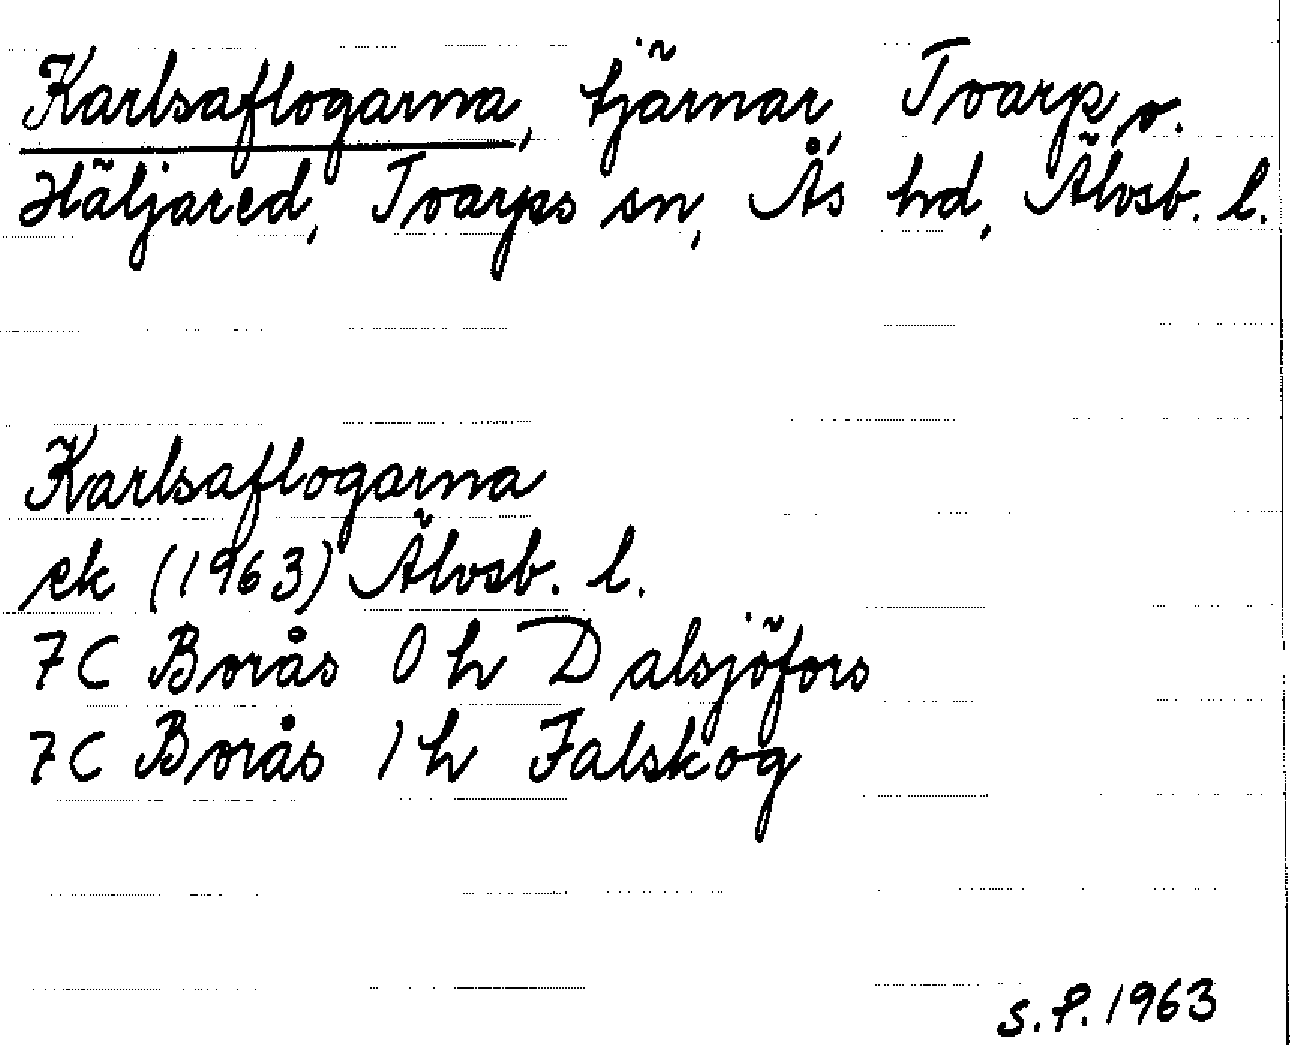 Karlsaflogarna, tjärnar, Toarp, o.
Häljared, Toarps sn, Ås hd, Älvsb. l.
Karlsaflogarna
ek (1963) Älvsb. l.
7C Borås 0h Dalsjöfors
7C Borås 1h Falskog
S.P. 1963